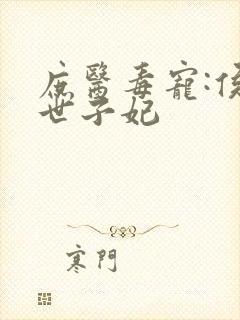 庶醫毒寵:侯
世子妃
寒門